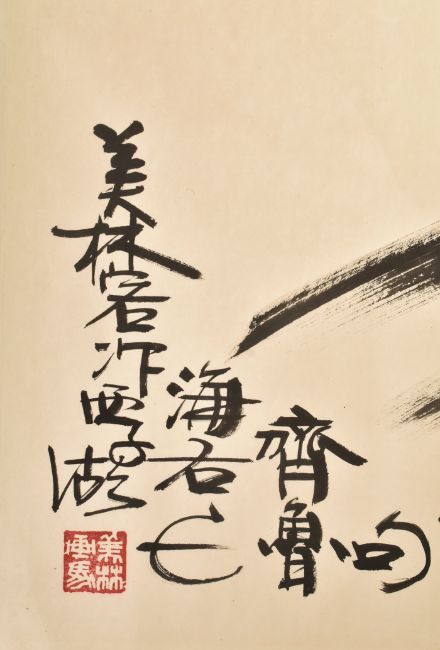 齊魯
海右
美林客作西子湖
美林
畫馬